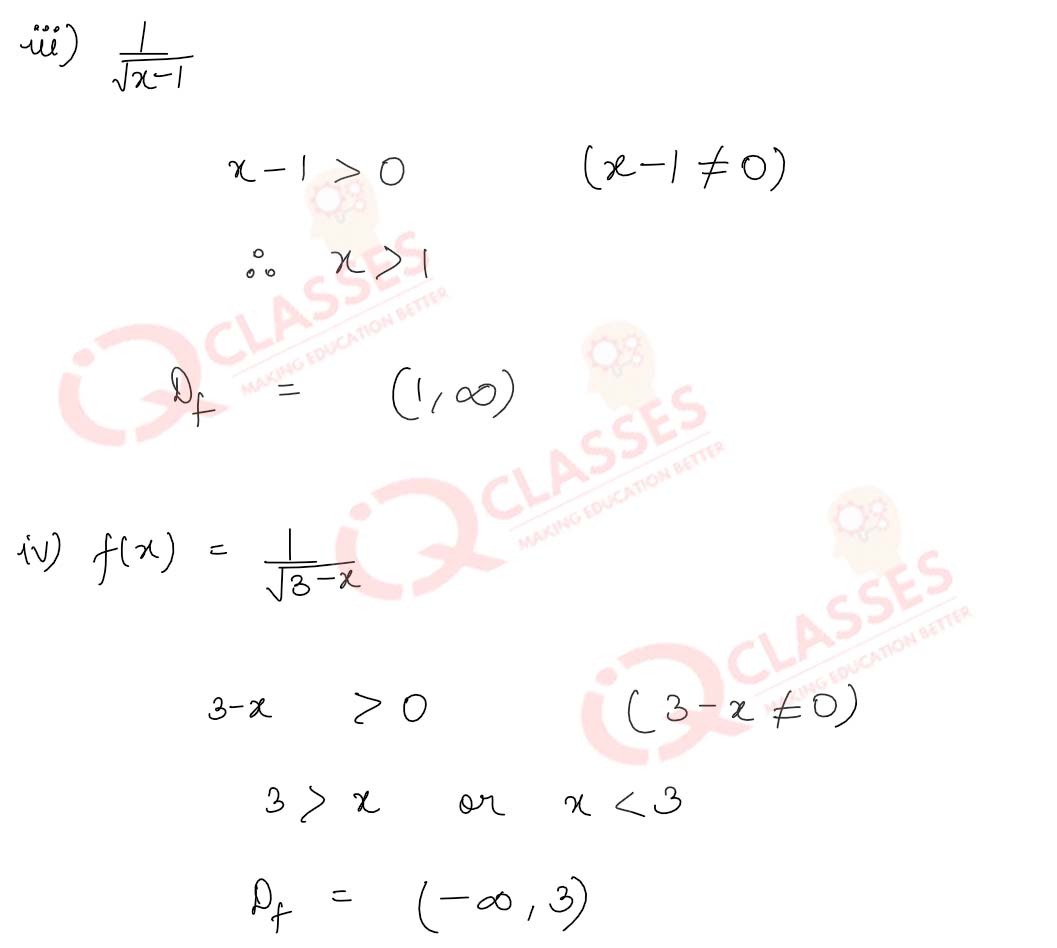 iii) 1/√x-1
x - 1 > 0 (x-1 ≠ 0)
∴ x > 1
Df = (1, ∞)
iv) f(x) = 1/√3-x
3-x > 0 (3-x ≠ 0)
3 > x or x < 3
Df = (-∞, 3)
iQ CLASSES
MAKING EDUCATION BETTER
iQ CLASSES
MAKING EDUCATION BETTER
iQ CLASSES
MAKING EDUCATION BETTER